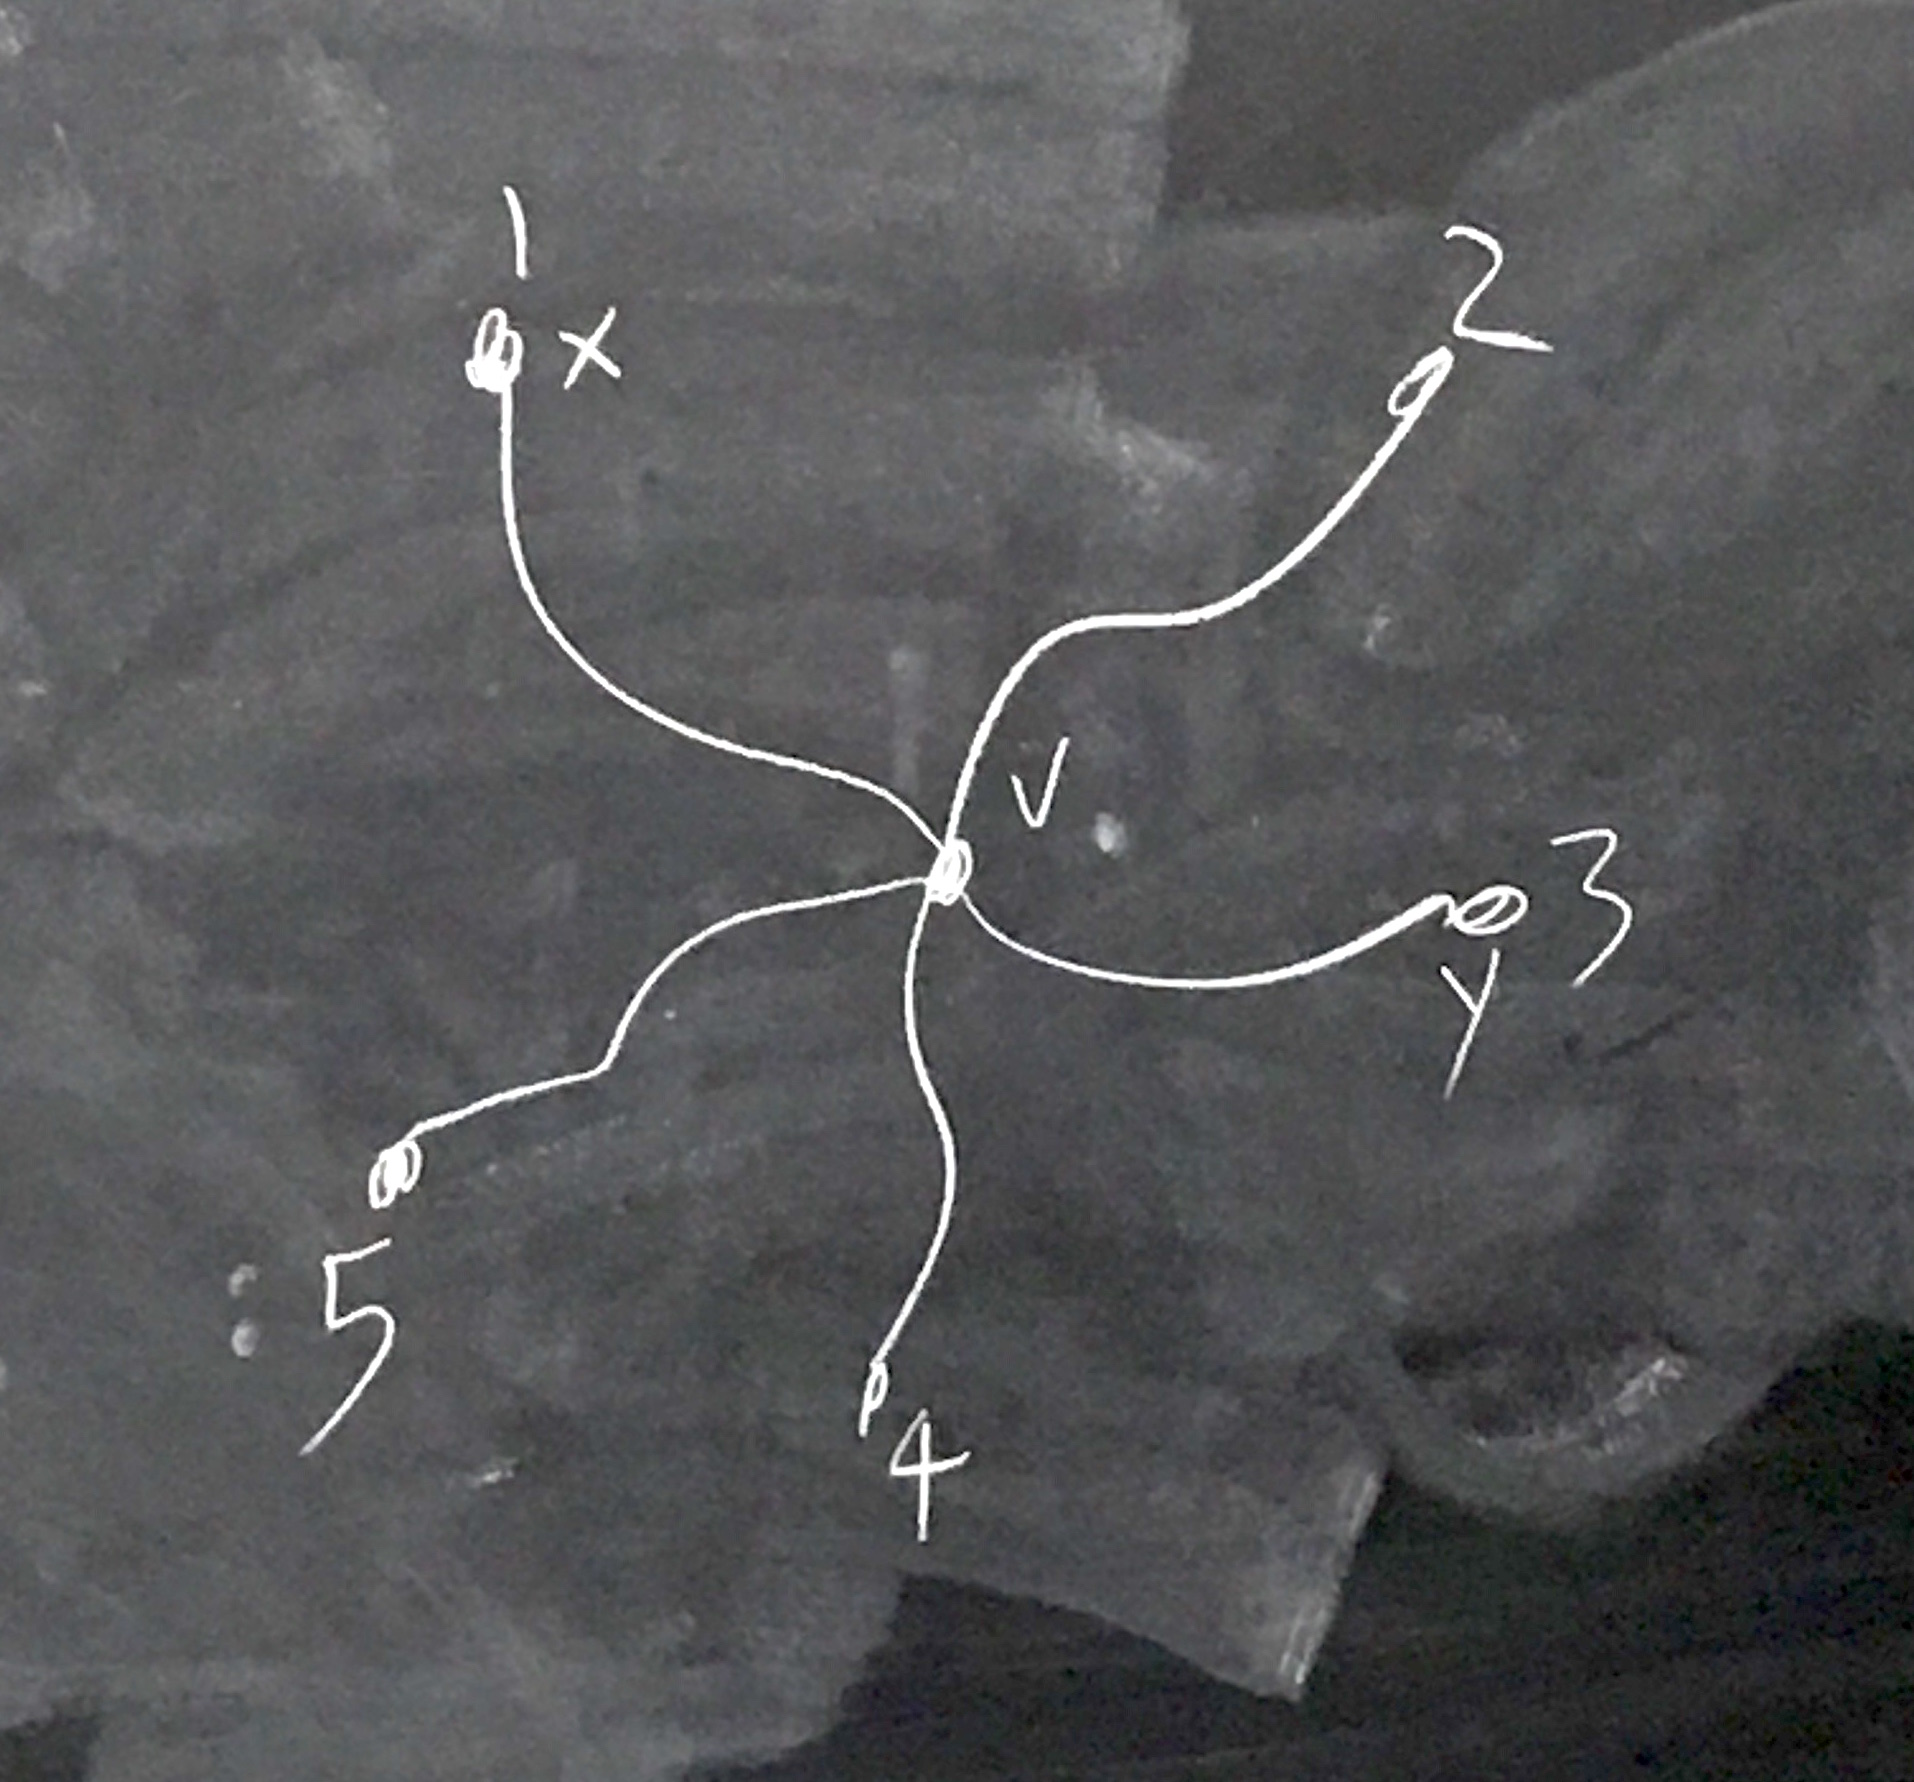 1
x
2
V
3
y
5
4